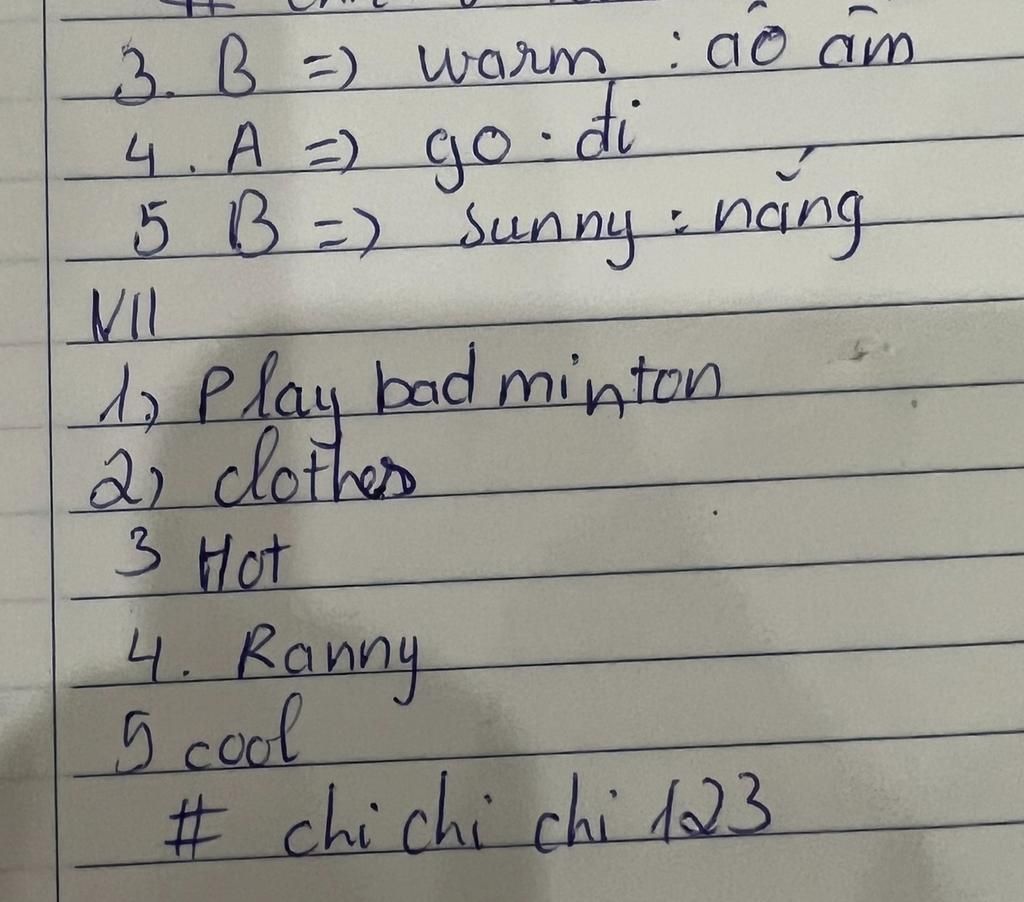 3. B => warm : aô âm
4. A => go : đi
5 B => sunny : nắng
VII
1, Play badminton
2, clothes
3 Hot
4. Ranny
5 cool
# chi chi chi 123